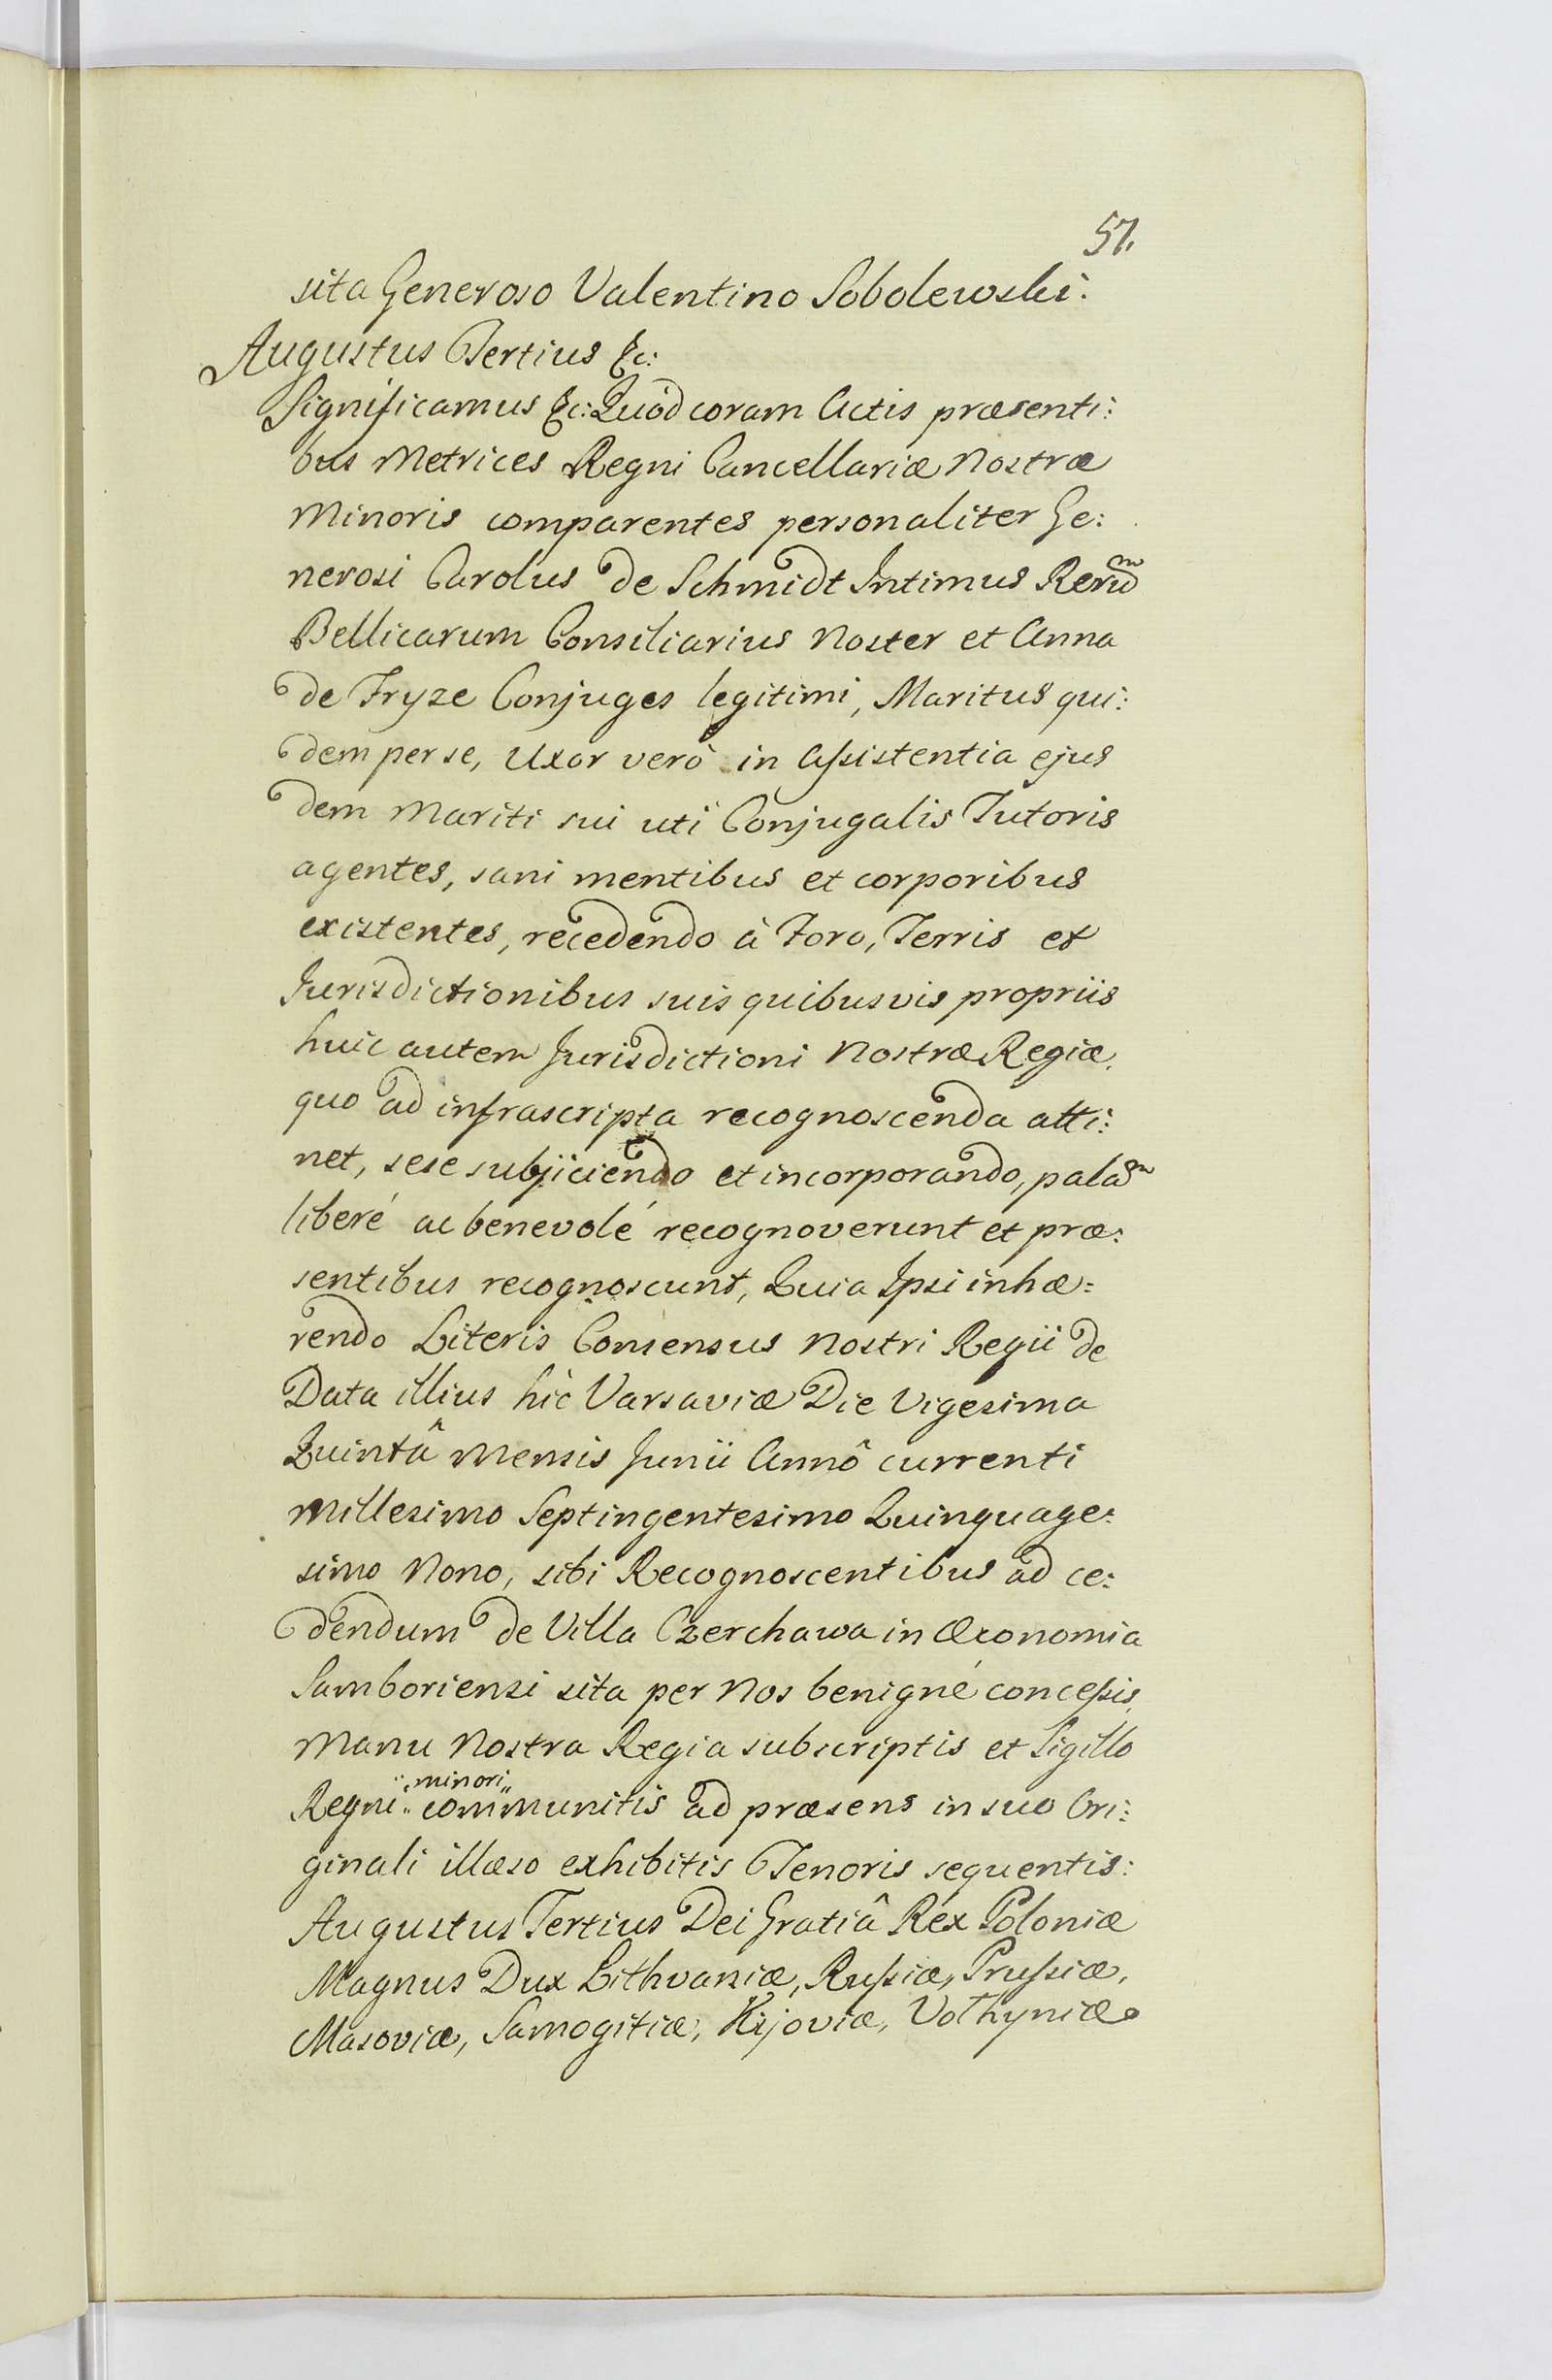 57.
sita Generoso Valentino Sobolewski.
Augustus Tertius &c:
Significamus &c: Quòd coram Actis præsenti:
bus Metrices Regni Cancellariæ Nostræ
Minoris comparentes personaliter Ge:
nerosi Carolus de Schmidt Intimus Rerum
Bellicarum Consiliarius Noster et Anna
de Fryze Conjuges legitimi, Maritus qui:
dem per se, Uxor verò in Assistentia ejus
dem Mariti sui uti Conjugalis Tutoris
agentes, sani mentibus et corporibus
existentes, recedendo à Foro, Terris et
Jurisdictionibus suis quibusvis propriis
huic autem Jurisdictioni Nostræ Regiæ,
quo ad infrascripta recognoscenda atti:
net, sese subjiciendo et incorporando, palam
liberé ac benevolé recognoverunt et præ:
sentibus recognoscunt, Quia Ipsi inhæ:
rendo Literis Consensus Nostri Regii de
Data illius hic Varsaviæ Die Vigesima
Quintâ Mensis Junii Annô currenti
Millesimo Septingentesimo Quinquage:
simo Nono, sibi Recognoscentibus ad ce:
dendum de Villa Czerchawa in Œconomia
Samboriensi sita per Nos benigné concessis,
Manu Nostra Regia subscriptis et Sigillo
Regni minori communitis ad præsens in suo Ori:
ginali illæso exhibitis Tenoris sequentis:
Augustus Tertius Dei Gratiâ Rex Poloniæ
Magnus Dux Lithvaniæ, Russiæ, Prussiæ,
Masoviæ, Samogitiæ, Kijoviæ, Volhyniæ